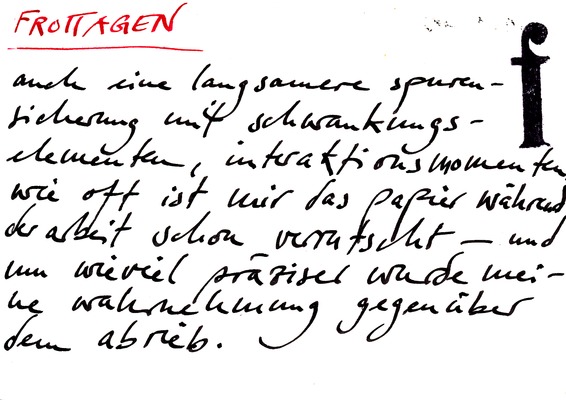 FROTTAGEN
f
auch eine langsamere spuren-
sicherung mit schwankungs-
elementen, interaktionsmomenten,
wie oft ist mir das papier während
der arbeit schon verrutscht — und
um wieviel präziser wurde mei-
ne wahrnehmung gegenüber
dem abrieb.